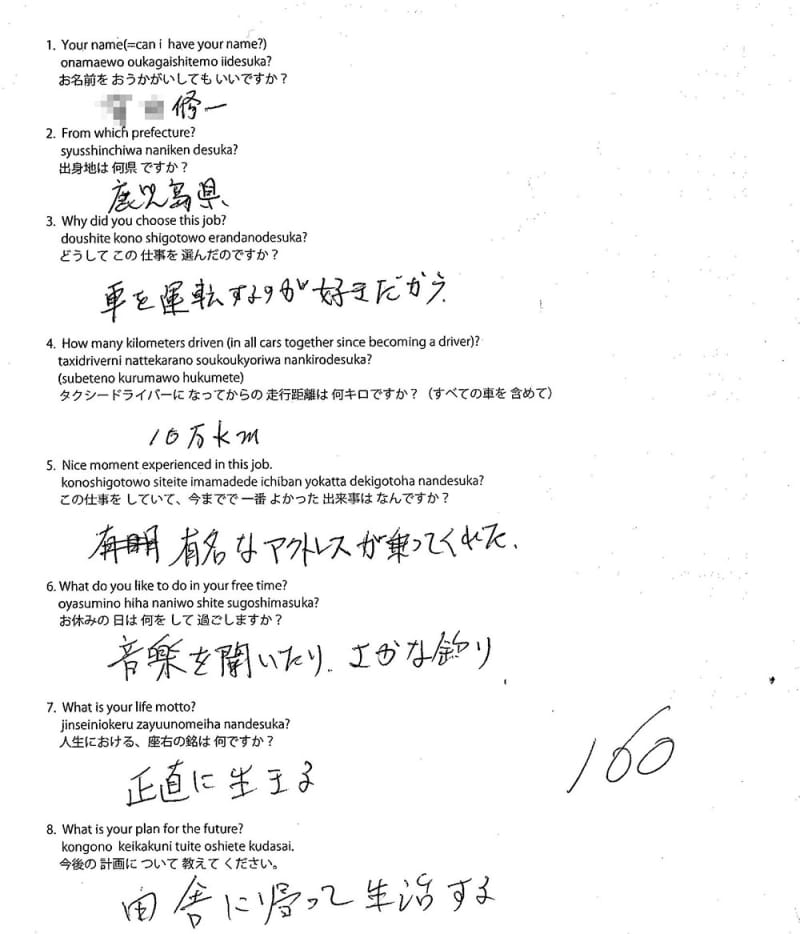 1. Your name(=can i have your name?)
onamaewo oukagaishitemo iidesuka?
お名前を おうかがいしても いいですか？
修一
2. From which prefecture?
syusshinchiwa naniken desuka?
出身地は 何県 ですか？
鹿児島県、
3. Why did you choose this job?
doushite kono shigotowo erandanodesuka?
どうして この 仕事を 選んだのですか？
車を運転するのが好きだから、
4. How many kilometers driven (in all cars together since becoming a driver)?
taxidriverni nattekarano soukoukyoriwa nankirodesuka?
(subeteno kurumawo hukumete)
タクシードライバーに なってからの 走行距離は 何キロですか？（すべての車を 含めて）
10万km
5. Nice moment experienced in this job.
konoshigotowo siteite imamadede ichiban yokatta dekigotoha nandesuka?
この仕事を していて、今までで 一番 よかった 出来事は なんですか？
有名なアクトレスが乗ってくれた、
6. What do you like to do in your free time?
oyasumino hiha naniwo shite sugoshimasuka?
お休みの 日は 何を して 過ごしますか？
音楽を聞いたり、さかな釣り
7. What is your life motto?
jinseiniokeru zayuunomeiha nandesuka?
人生における、座右の銘は 何ですか？
正直に生きる
160
8. What is your plan for the future?
kongono keikakuni tuite oshiete kudasai.
今後の 計画に ついて 教えて ください。
田舎に帰って生活する